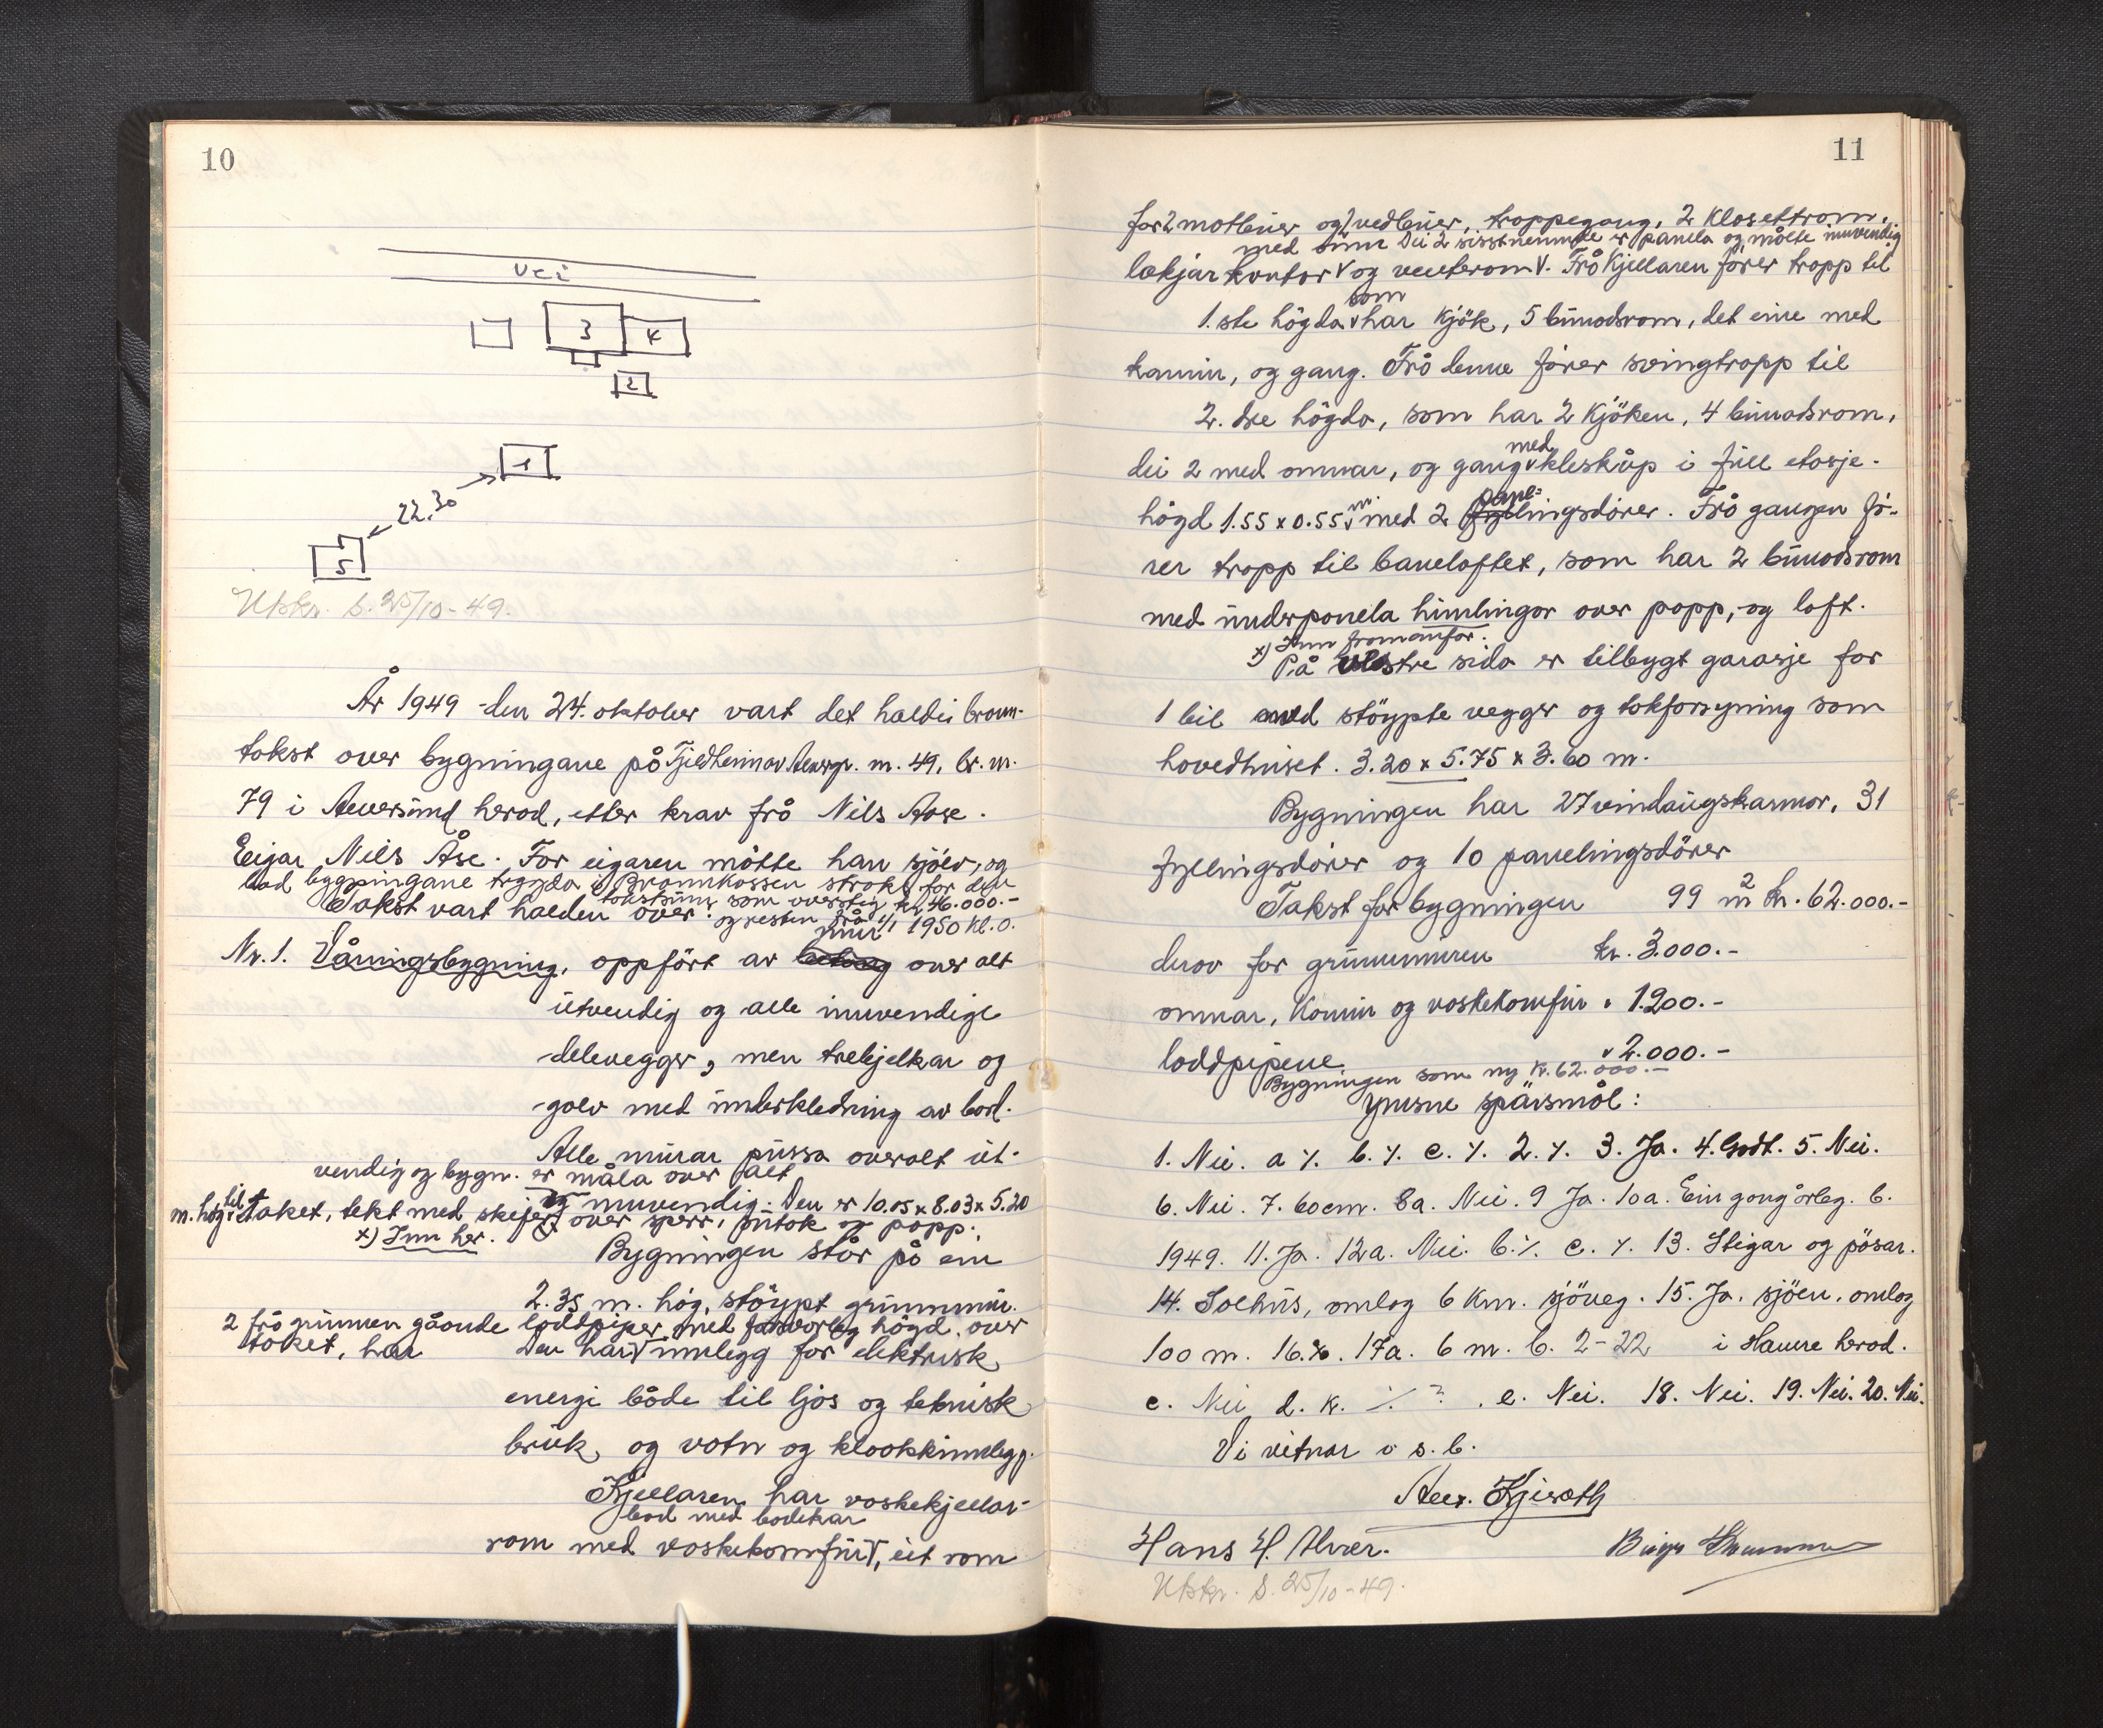 10
Vei
3
4
2
1
22,30
5
Utskr. S. 25/10-49.
År 1949 den 24. oktober vart det halde brann-
takst over bygningane på Fjeldheim av gr. nr. 49, br. nr.
79 i Alversund herad, etter krav frå Nils Åse.
Eigar Nils Åse. For eigaren møtte han sjølv, og
bad bygningane trygda i Brannkassen straks for den
takstsum som overstig kr. 46.000.-
Takst vart halden over: og resten frå 1/1 1950 kl. 0.
mur
Nr. 1. Våningsbygning, oppført av betong over alt
utvendig og alle innvendige
delevegger, men trebjelkar og
golv med underkledning av bord.
Alle murar pussa overalt ut-
vendig og bygn. er måla over alt
innvendig. Den er 10.05 x 8.03 x 5.20
m. høg til taket, tekt med skifer over sperr, sutak og papp.
x) Inn her.
Bygningen står på ein
2.35 m. høg, støypt grunnmur.
2 frå grunnen gåande loddpiper med forsvarleg høgd over
taket, har
Den har innlegg for elektrisk
energi både til ljos og teknisk
bruk, og vatn og kloakkinnlegg.
Kjellaren har vaskekjellar-
bod med badekar
rom med vaskekomfur, eit rom
11
for 2 matbuer og 2 vedbuer, trappegang, 2 klosettrom,
med omn Dei 2 sisstnemnde er panela og målte innvendig
lækjarkontor og venterom. Frå kjellaren fører trapp til
som
1.ste høgda har kjøk, 5 buuadsrom, det eine med
kamin, og gang. Frå denne fører svingtrapp til
2. dre høgda, som har 2 kjøken, 4 buuadsrom,
med
dei 2 med omnar, og gang kleskåp i full etasje-
panel-
høgd 1.55 x 0.55 m. med 2 fyllingsdører. Frå gangen fø-
rer trapp til baneloftet, som har 2 buuadsrom
med underpanela himlingar over papp, og loft.
x) Inn framanfor.
På vestre sida er tilbygt garasje for
1 bil med støypte vegger og takforsyning som
hovedhuset. 3.20 x 5.75 x 3.60 m.
Bygningen har 27 vindaugskarmar, 31
fyllingsdører og 10 panelingsdører
Takst for bygningen 99 m2 kr. 62.000.-
derav for grunnmuren kr. 3.000.-
omnar, kamin og vaskekomfur " 1.200.-
loddpipene " 2.000.-
Bygningen som ny kr. 62.000.-
Ymsne spørsmål:
1. Nei. a ./. b. ./. c. ./. 2. ./. 3. Ja. 4. Godt. 5. Nei.
6. Nei. 7. 60 cm. 8a. Nei. 9 Ja. 10a. Ein gong årleg. b.
1949. 11. Ja. 12a. Nei. b. ./. c. ./. 13. Stigar og pøsar.
14. Solhus, omlag 6 km. sjøveg. 15. Ja. sjøen, omlag
100 m. 16. ./. 17a. 6 m. b. 2-22 i Hamre herad.
c. Nei d. kr. ./. ? . e. Nei. 18. Nei. 19. Nei. 20. Nei.
Vi vitnar o s. b.
Hans H. Alver.
Utskr. S. 25/10-49.